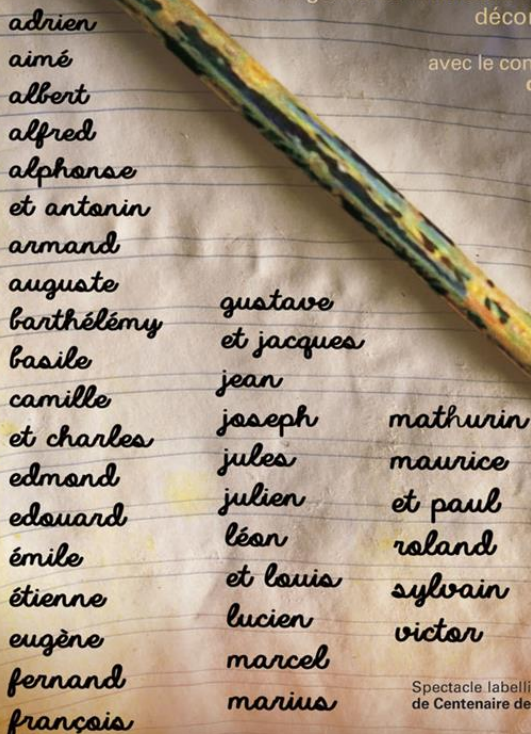 décor
avec le con
adrien
aimé
albert
alfred
alphonse
et antonin
armand
auguste
barthélémy
basile
camille
et charles
edmond
edouard
émile
étienne
eugène
fernand
françois
gustave
et jacques
jean
joseph
jules
julien
léon
et louis
lucien
marcel
marius
mathurin
maurice
et paul
roland
sylvain
victor
Spectacle labelli
de Centenaire de